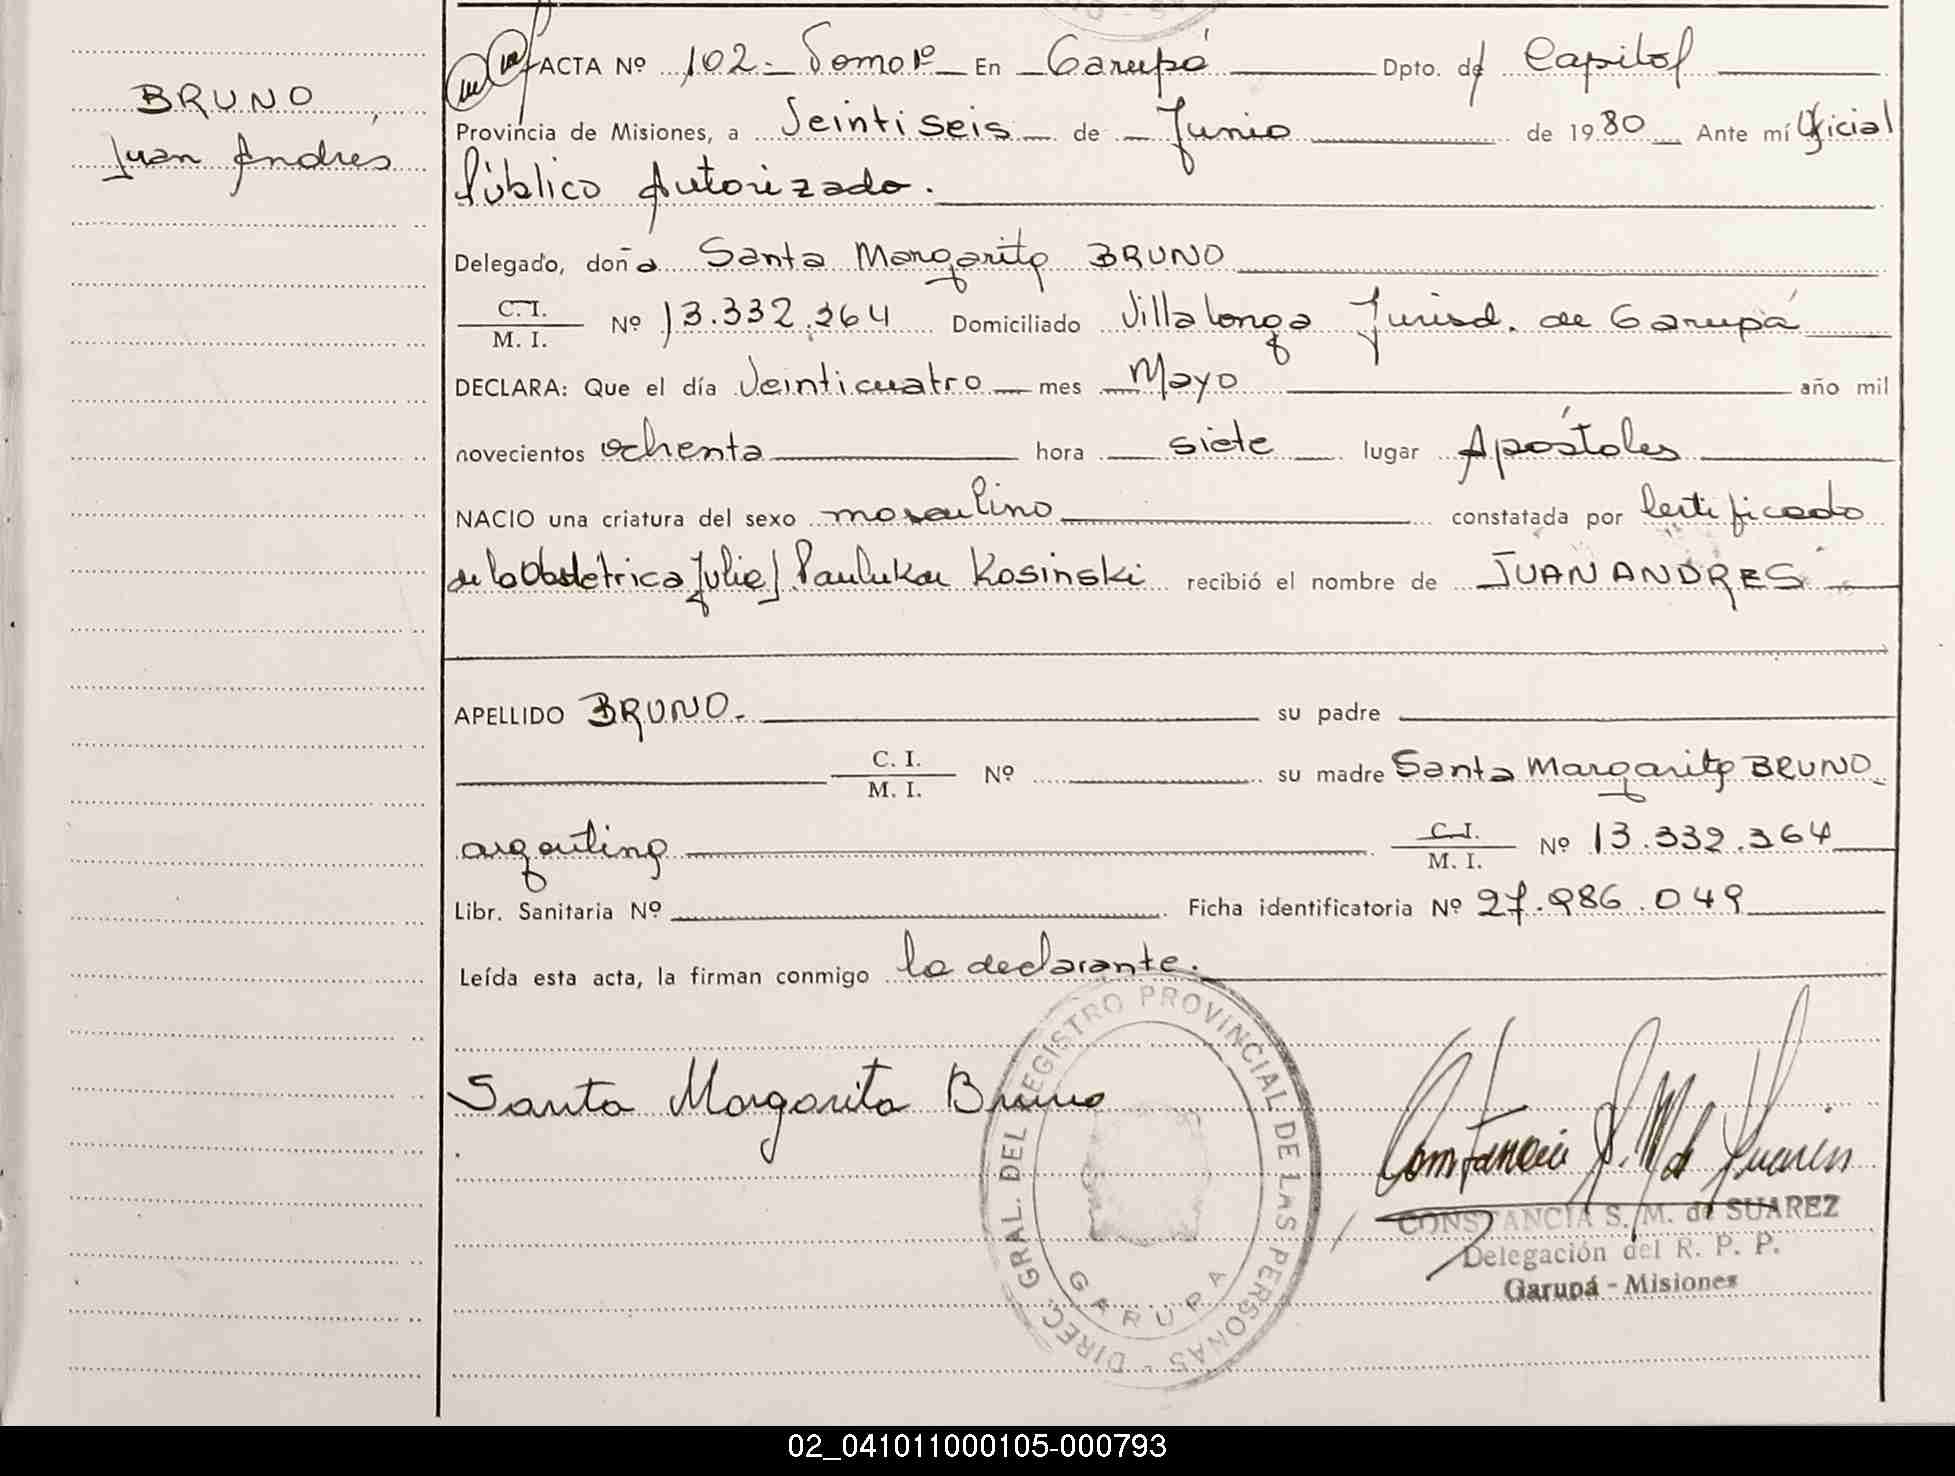 BRUNO
Juan Andrés
ACTA Nº 102- Tomo 1º En Garupá Dpto. de Capital
Provincia de Misiones, a Veintiseis de Junio de 1980 Ante mí Oficial
Público Autorizado.
Delegado, doña Santa Margarita BRUNO
C. I.
M. I. Nº 13.332.364 Domiciliado Villalonga Jurisd. de Garupá
DECLARA: Que el día Veinticuatro mes Mayo año mil
novecientos ochenta hora siete lugar Apóstoles
NACIO una criatura del sexo masculino constatada por Certificado
de la Obstétrica Julia Kosinski recibió el nombre de JUAN ANDRÉS
APELLIDO BRUNO. su padre
C. I.
M. I. Nº su madre Santa Margarita BRUNO
argentina C. I.
M. I. Nº 13.332.364
Libr. Sanitaria Nº Ficha identificatoria Nº 27.986.049
Leída esta acta, la firman conmigo la declarante.
Santa Margarita Bruno
DIREC. GRAL. DEL REGISTRO PROVINCIAL DE LAS PERSONAS -
GARUPA
CONSTANCIA S. M. de SUAREZ
Delegación del R. P. P.
Garupá - Misiones
02_041011000105-000793